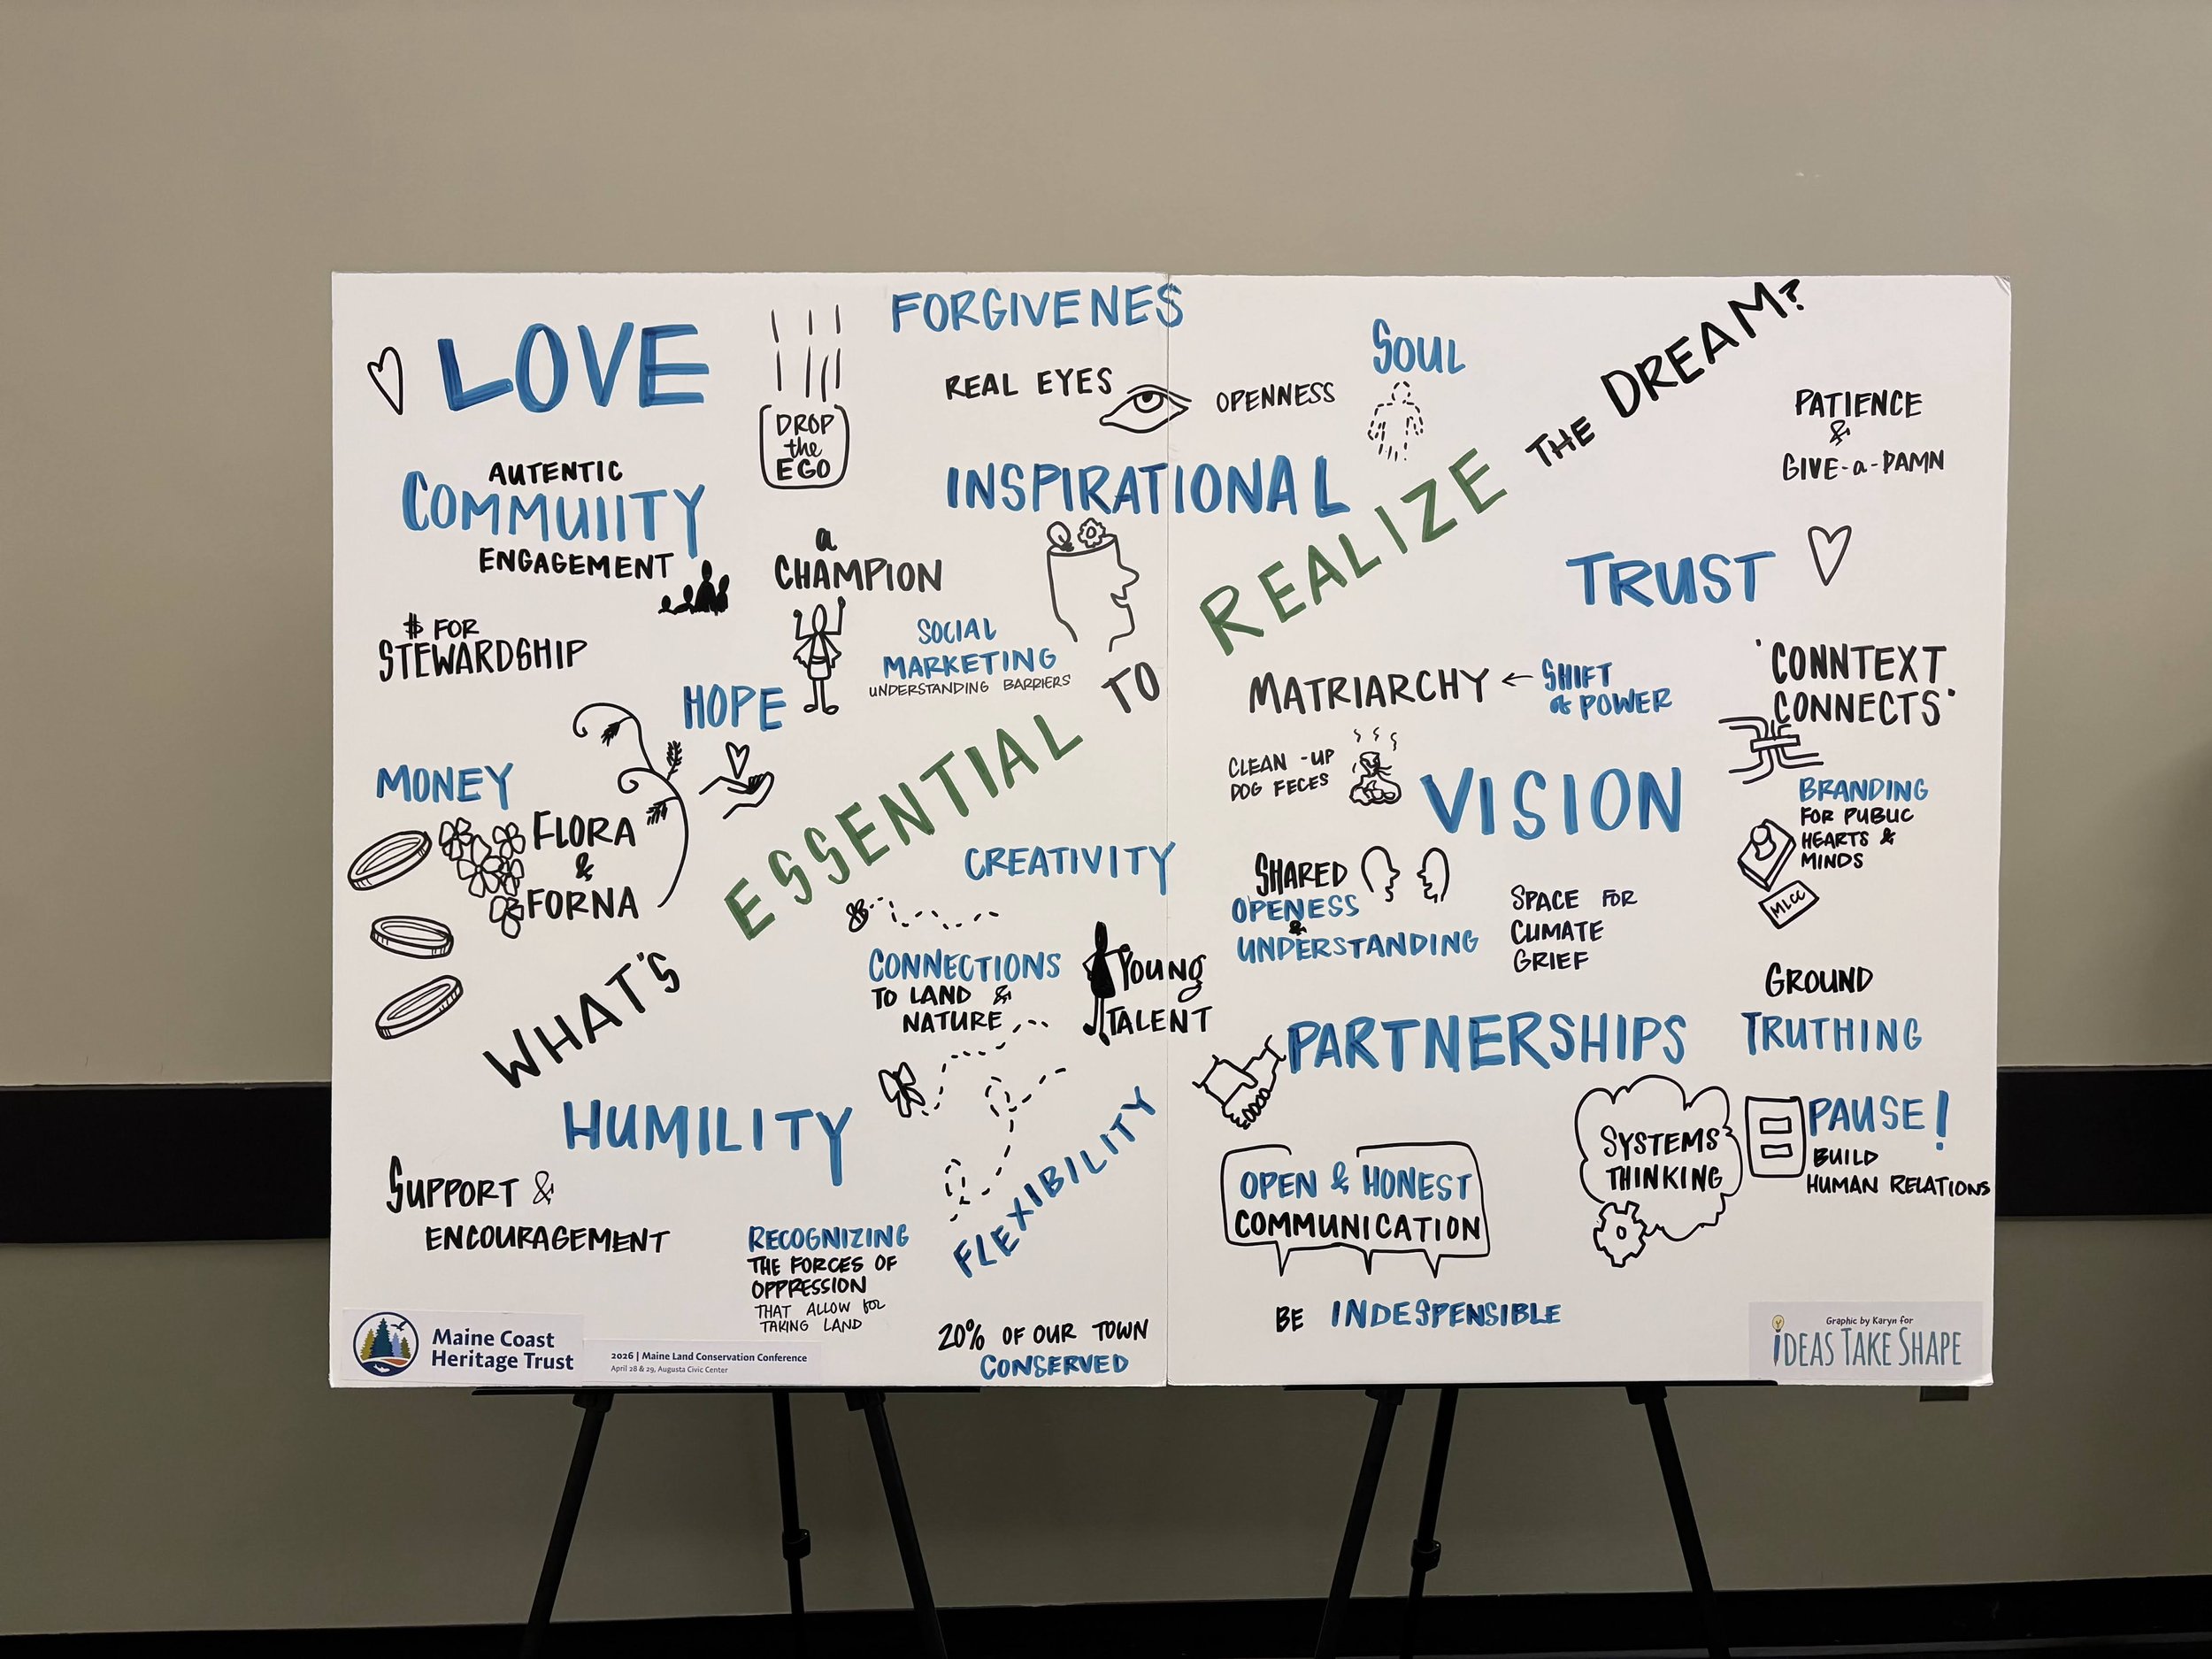 WHAT'S ESSENTIAL TO REALIZE THE DREAM?
LOVE
DROP
the
EGO
FORGIVENES
REAL EYES
OPENNESS
SOUL
PATIENCE
&
GIVE-a-DAMN
AUTENTIC
COMMUIITY
ENGAGEMENT
INSPIRATIONAL
a
CHAMPION
TRUST
$ FOR
STEWARDSHIP
SOCIAL
MARKETING
UNDERSTANDING BARRIERS
HOPE
MATRIARCHY ← SHIFT
of POWER
'CONNTEXT
CONNECTS'
MONEY
FLORA
&
FORNA
CLEAN-UP
DOG FECES
VISION
BRANDING
FOR PUBLIC
HEARTS &
MINDS
MLCC
CREATIVITY
SHARED
OPENESS
&
UNDERSTANDING
SPACE FOR
CLIMATE
GRIEF
CONNECTIONS
TO LAND &
NATURE
YOUNG
TALENT
GROUND
TRUTHING
PARTNERSHIPS
HUMILITY
FLEXIBILITY
SYSTEMS
THINKING
PAUSE!
BUILD
HUMAN RELATIONS
SUPPORT &
ENCOURAGEMENT
OPEN & HONEST
COMMUNICATION
RECOGNIZING
THE FORCES OF
OPPRESSION
THAT ALLOW for
TAKING LAND
20% OF OUR TOWN
CONSERVED
BE INDESPENSIBLE
Maine Coast
Heritage Trust
2026 | Maine Land Conservation Conference
April 28 & 29, Augusta Civic Center
Graphic by Karyn for
iDEAS TAKE SHAPE